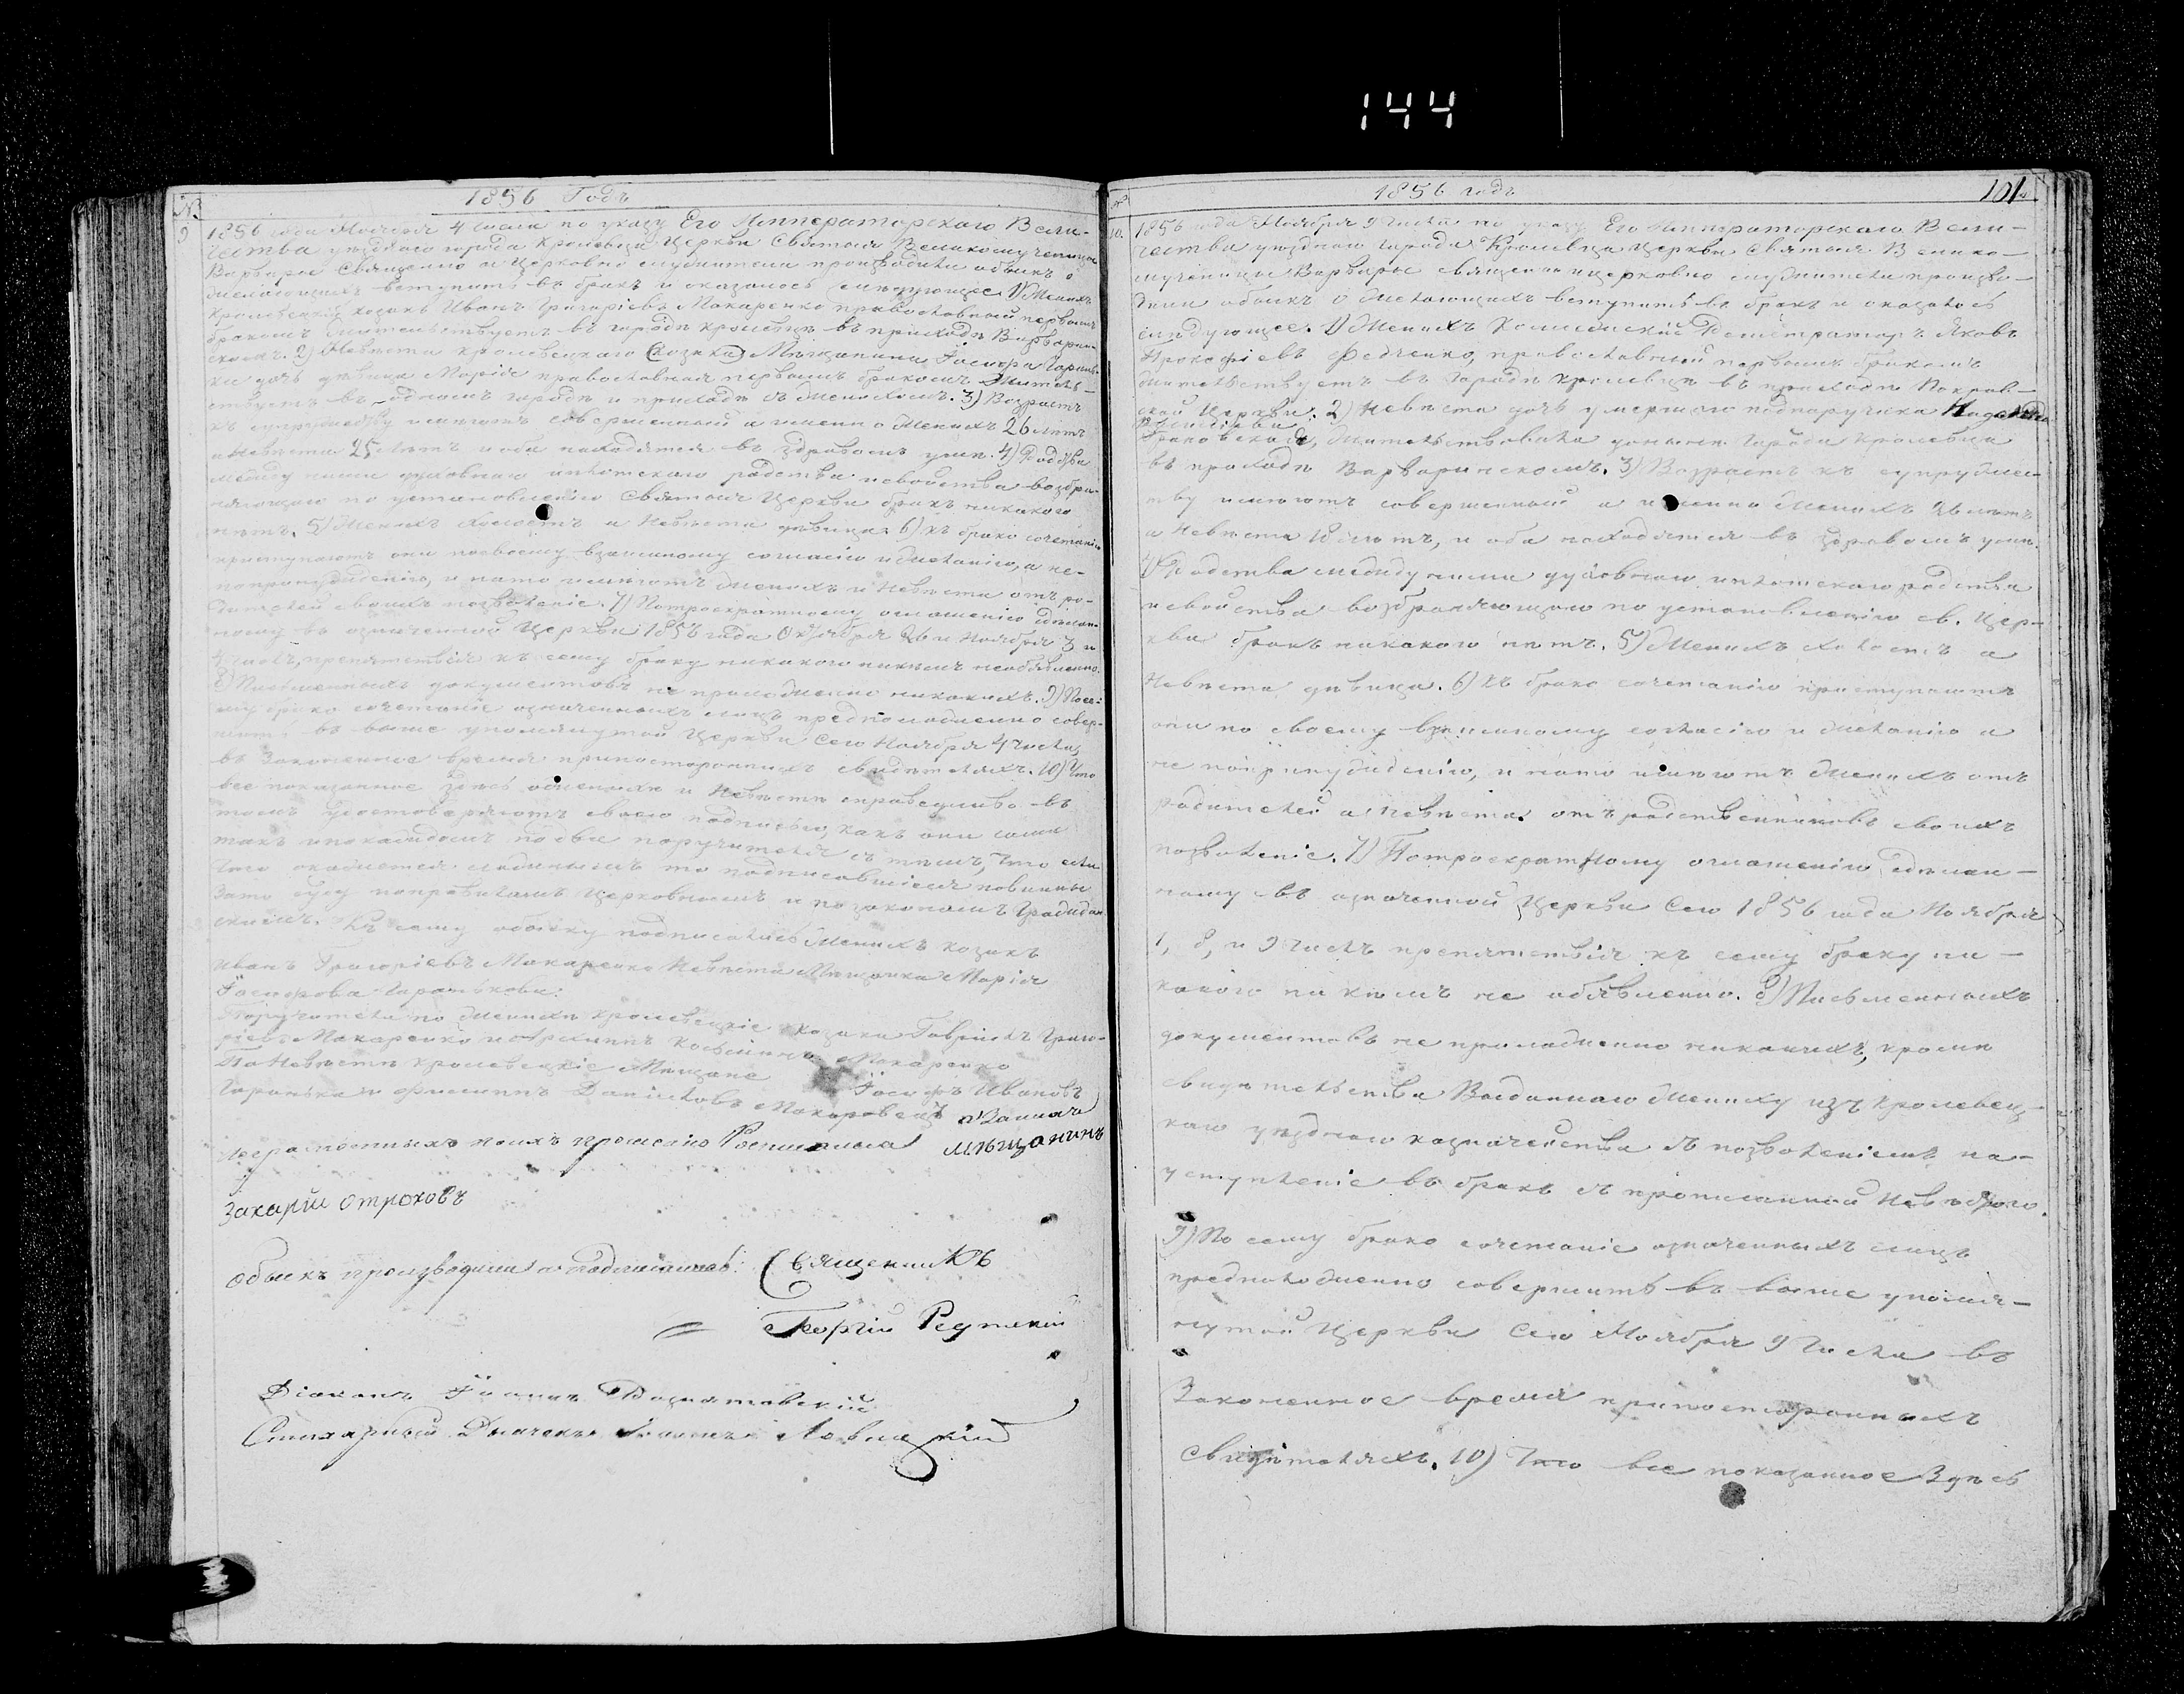 144
№
1856 Годъ
9
1856 года Ноября 4 числа по указу Его Императорскаго Вели-
чества уѣзднаго города Кролевца Церкви Святыя Великомученицы
Варвары Священно и Церковно служители производили обыскъ о
желающихъ вступить въ бракъ и оказалось слѣдующее 1) Женихъ
Кролевецкій козакъ Иванъ Григоріевъ Макаренко православный первымъ
бракомъ жительствуетъ въ городѣ Кролевцѣ въ приходѣ Варварин-
скомъ. 2) Невѣста Кролевецкаго (козака) Мѣщанина Іосифа Гарань-
ки дочь дѣвица Марія православная первымъ бракомъ жительс-
ствуетъ въ одномъ городѣ и приходѣ съ женихомъ. 3) Возрастъ
къ супружеству имѣютъ совершенный а именно Женихъ 26 лѣтъ
а Невѣста 25 лѣтъ и оба находятся въ здравомъ умѣ. 4) Родства
между ними духовнаго и плотскаго родства и свойства возбра-
няющаго по установленію Святыя Церкви бракъ никакого
нѣтъ. 5) Женихъ холостъ а Невѣста дѣвица. 6) къ брако сочетанію
приступаютъ они по своему взаимному согласію и желанію, а не-
по принужденію, и на то имѣютъ женихъ и Невѣста отъ ро-
дителей своихъ позволеніе. 7) По троекратному оглашенію сдѣлан-
ному въ означенной Церкви 1856 года Октября 26 и Ноября 3 и
4 числъ, препятствія къ сему браку никакого никѣмъ не объявлено.
8) Письменныхъ документовъ не приложено никакихъ. 9) По се-
му брако сочетаніе означенныхъ лицъ предположенно совер-
шить въ выше упомянутой Церкви сего Ноября 4 числа
въ Законенное время при постороннихъ свидѣтеляхъ. 10) Что
все показанное здѣсь о женихѣ и Невѣстѣ справедливо въ
томъ удостовѣряютъ своею подписью, какъ они сами
такъ и по каждомъ по два поручителя съ тѣмъ, что если
что окажется ложнымъ то подписавшіеся повинны
за то суду по правиламъ Церковнымъ и по законамъ Граждан-
скимъ. Къ сему обыску подписались Женихъ козакъ
Иванъ Григоріевъ Макаренко Невѣста Мѣщанка Марія
Іосифова Гаранькова:
Поручители по женихѣ Кролевецкіе козаки Гавріилъ Григо-
ріевъ Макаренко и Архиппъ Макаренко
По Невѣстѣ Кролевецкіе Мѣщане Іосифъ Ивановъ
Гаранька и Филиппъ Даніиловъ Макаровецъ а за нихъ
неграмотныхъ по ихъ прошенію Росписался мѣщанинъ
Захарій Отроховъ
Обыскъ производили и подписались: Священникъ
Георгій
Діаконъ Іоаннъ
Стихарный Дьячекъ Іоаннъ
№
1856 годъ
101.
10.
1856 года Ноября 9 числа по указу Его Императорскаго Вели-
чества уѣзднаго города Кролевца Церкви Святыя Велико-
мученицы Варвары священно и церковно служители произво-
дили обыскъ о желающихъ вступить въ бракъ и оказалось
слѣдующее. 1) Женихъ Коллежскій Регистраторъ Яковъ
Прокофіевъ Федченко, православный первымъ бракомъ
жительствуетъ въ городѣ Кролевцѣ въ приходѣ Покров-
ской Церкви. 2) Невѣста дочь умершаго подпоручика Надежда
жительствовала донынѣ города Кролевца
въ приходѣ Варваринскомъ. 3) Возрастъ къ супружес-
тву имѣютъ совершенный а именно Женихъ 26 лѣтъ
а Невѣста 18 лѣтъ, и оба находятся въ здравомъ умѣ.
4) Родства между ними духовнаго и плотскаго родства
и свойства возбраняющаго по установленію св. Цер-
кви бракъ никакого нѣтъ. 5) Женихъ холостъ а
Невѣста дѣвица. 6) Къ брако сочетанію приступаютъ
они по своему взаимному согласію и желанію а
не по принужденію, и на то имѣютъ женихъ отъ
родителей а невѣста отъ родственниковъ своихъ
позволеніе. 7) По троекратному оглашенію сдѣлан-
ному въ означенной Церкви сего 1856 года Ноября
1, 8, и 9 числъ препятствія къ сему браку ни-
какого никѣмъ не объявленно. 8) Письменныхъ
документовъ не приложенно никакихъ, кромѣ
свидѣтельства Выданнаго жениху изъ Кролевец-
каго уѣзднаго казначейства съ позволеніемъ на-
уступленіе въ бракъ съ прописанной Невѣстою.
9) По сему брако сочетаніе означенныхъ лицъ
предположенно совершить въ выше упомя-
нутой Церкви сего Ноября 9 числа въ
Законенное время при постороннихъ
свидѣтеляхъ. 10) Что все показанное Здѣсь